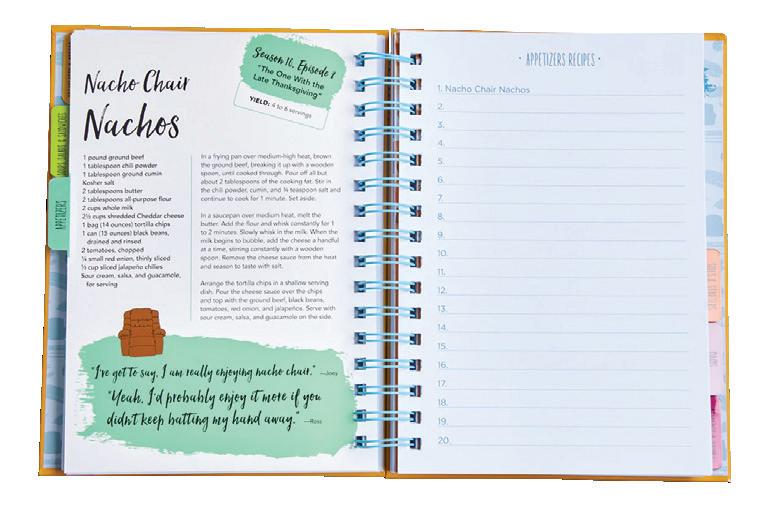 Season 16, Episode 8
"The One With the
Late Thanksgiving"
YIELD: 4 to 6 servings
Nacho Chair
Nachos
1 pound ground beef
1 tablespoon chili powder
1 tablespoon ground cumin
Kosher salt
2 tablespoons butter
2 tablespoons all-purpose flour
2 cups whole milk
2½ cups shredded Cheddar cheese
1 bag (14 ounces) tortilla chips
1 can (15 ounces) black beans,
drained and rinsed
2 tomatoes, chopped
¼ small red onion, thinly sliced
½ cup sliced jalapeño chilies
Sour cream, salsa, and guacamole,
for serving
In a frying pan over medium-high heat, brown
the ground beef, breaking it up with a wooden
spoon, until cooked through. Pour off all but
about 2 tablespoons of the cooking fat. Stir in
the chili powder, cumin, and ¾ teaspoon salt and
continue to cook for 1 minute. Set aside.
In a saucepan over medium heat, melt the
butter. Add the flour and whisk constantly for 1
to 2 minutes. Slowly whisk in the milk. When the
milk begins to bubble, add the cheese a handful
at a time, stirring constantly with a wooden
spoon. Remove the cheese sauce from the heat
and season to taste with salt.
Arrange the tortilla chips in a shallow serving
dish. Pour the cheese sauce over the chips
and top with the ground beef, black beans,
tomatoes, red onion, and jalapeños. Serve with
sour cream, salsa, and guacamole on the side.
"I've got to say, I am really enjoying nacho chair." —Joey
"Yeah, I'd probably enjoy it more if you
didn't keep batting my hand away." —Ross
SOUPS, SALADS & SANDWICHES
APPETIZERS
• APPETIZERS RECIPES •
1. Nacho Chair Nachos
2.
3.
4.
5.
6.
7.
8.
9.
10.
11.
12.
13.
14.
15.
16.
17.
18.
19.
20.